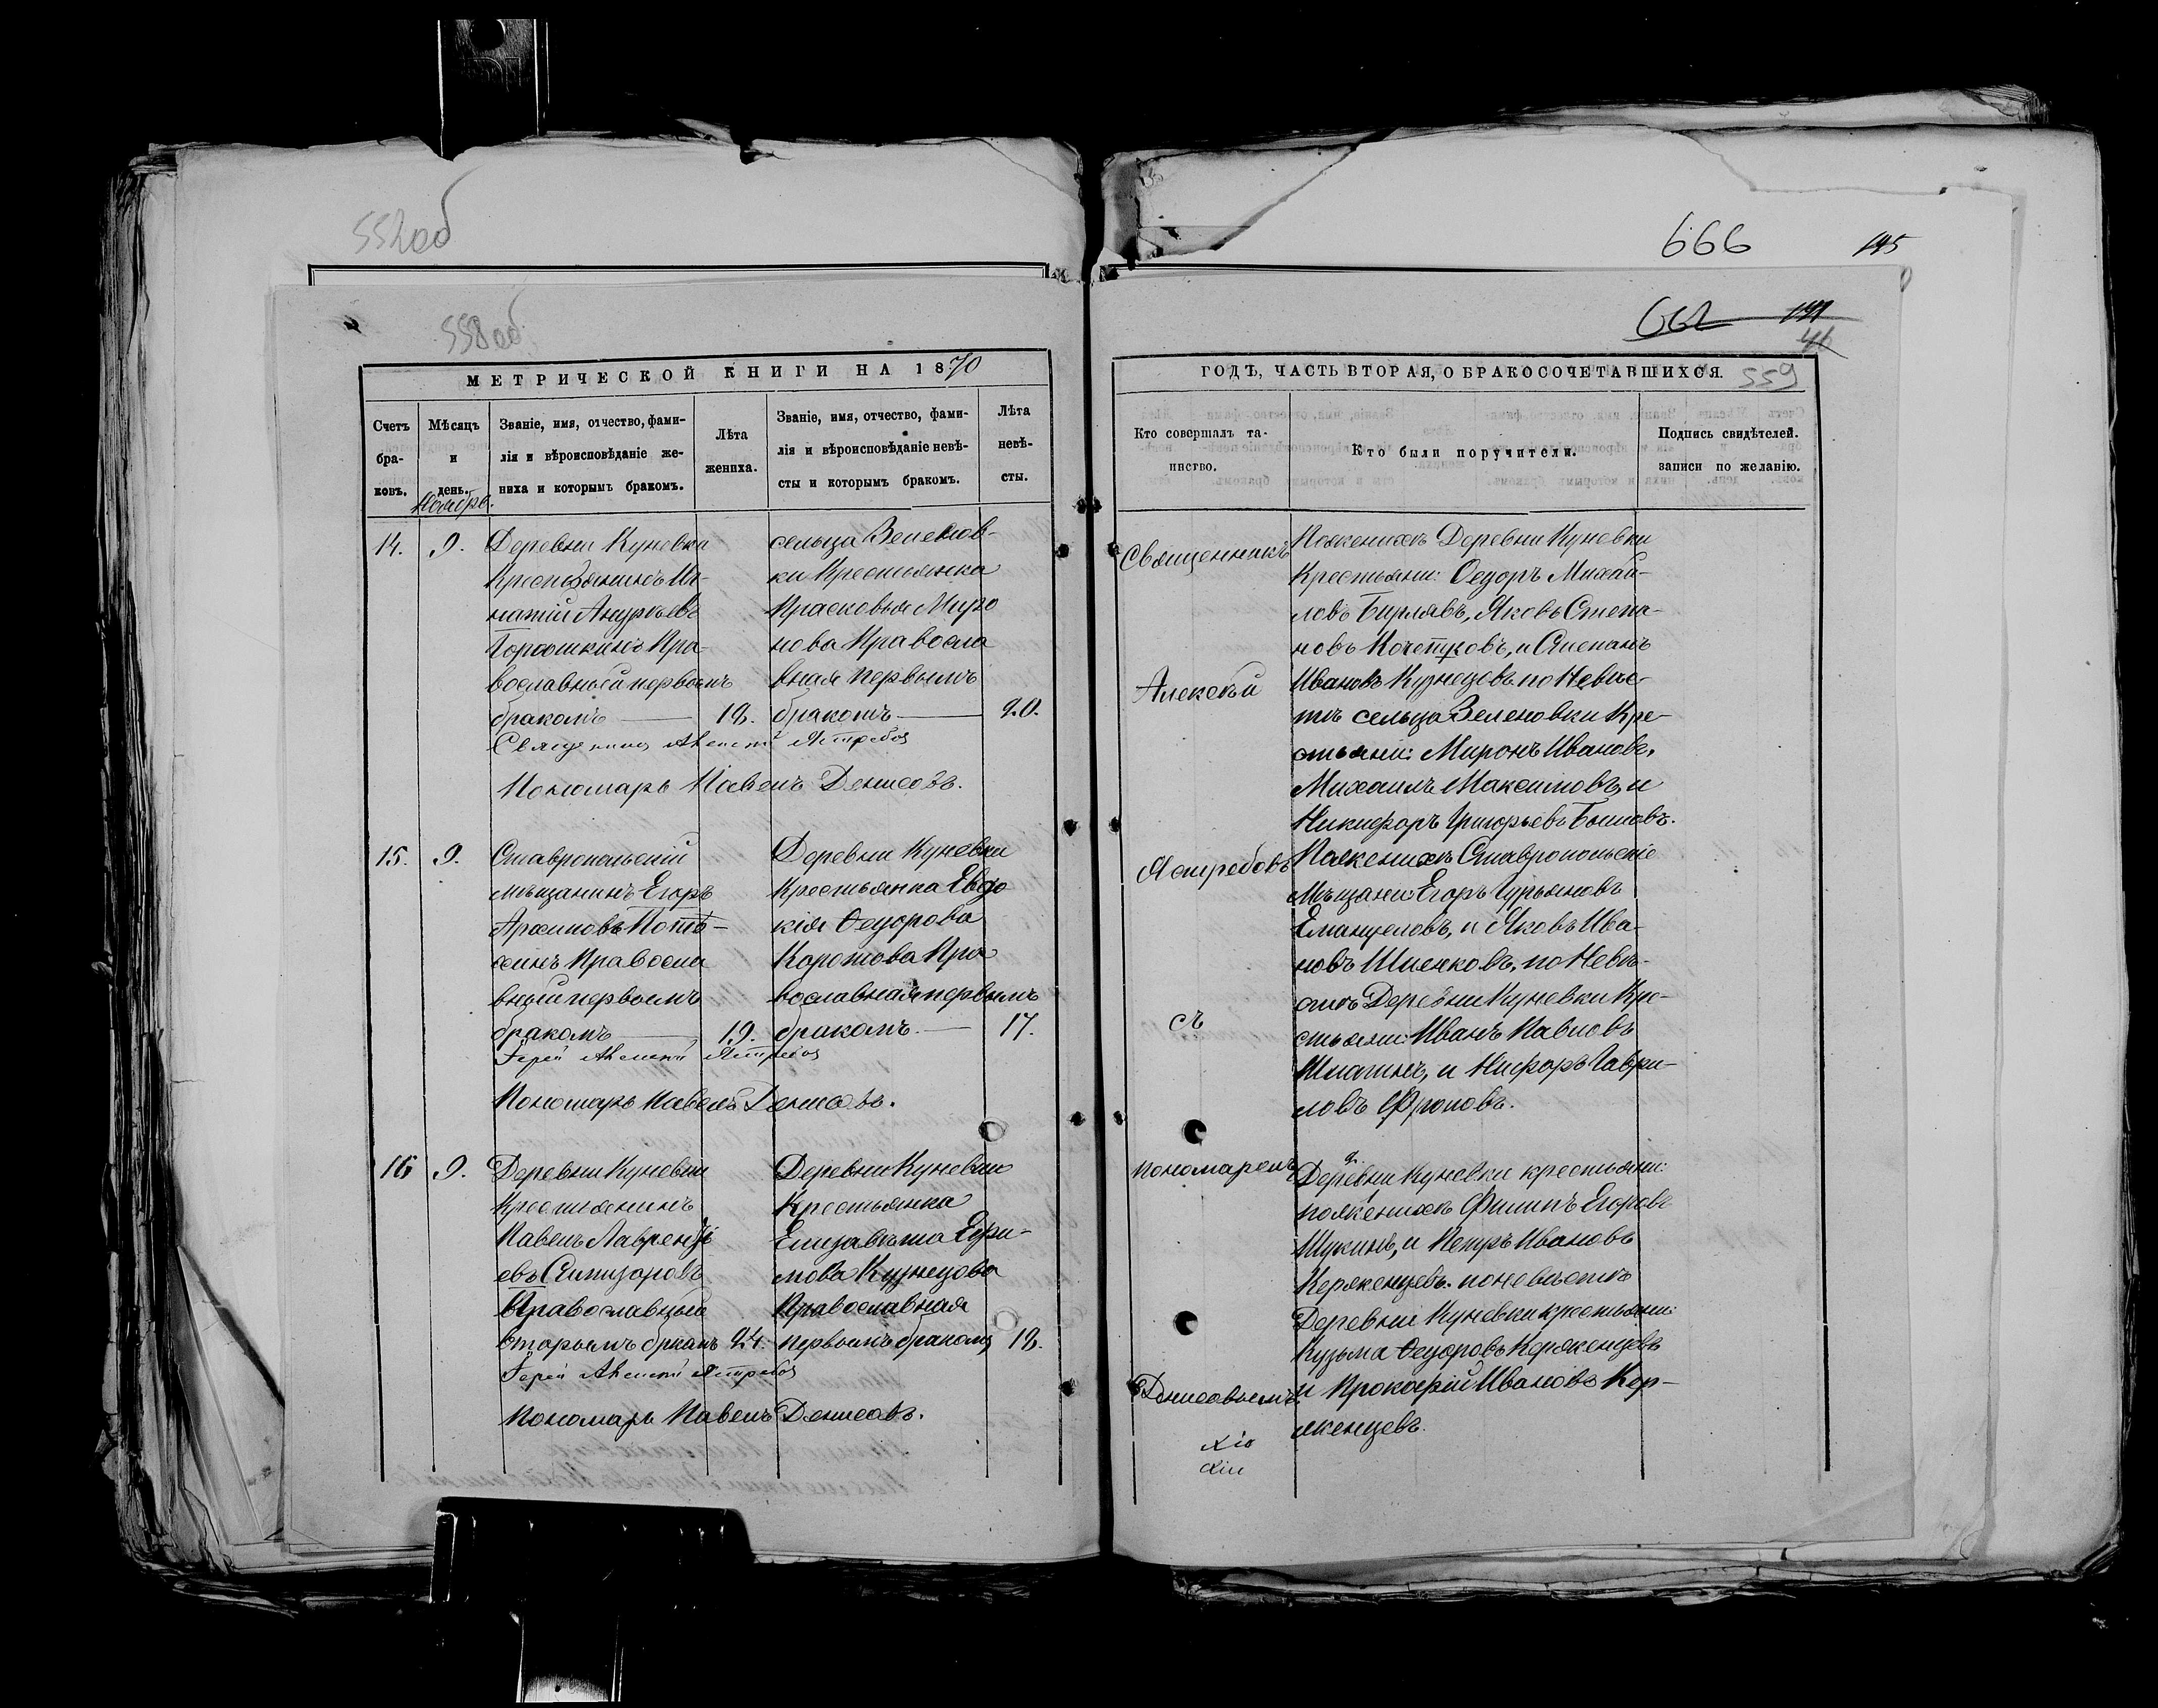 552об
558об
МЕТРИЧЕСКОЙ КНИГИ НА 1870
Счетъ бра-ковъ.
Мѣсяцъ и день.
Званіе, имя, отчество, фами-
лія и вѣроисповѣданіе же-
ниха и которымъ бракомъ.
Лѣта жениха.
Званіе, имя, отчество, фами-
лія и вѣроисповѣданіе невѣ-
сты и которымъ бракомъ.
Лѣта невѣ-сты.
Ноябрь.
14. 9.
Деревни Куневки
Крестьянинъ Иг-
натій Ануфріевъ
Горошкинъ Пра-
вославный первымъ
бракомъ — 18.
сельца Зеленов-
ки Крестьянка
Прасковья Миро
нова Правосла
вная первымъ
бракомъ — 20.
Священникъ Алексій Ястребовъ
Пономарь Павелъ Денисовъ.
15. 9.
Ставропольскій
мѣщанинъ Егоръ
Архиповъ Пота-
скинъ Правосла
вный первымъ
бракомъ — 19.
Деревни Куневки
Крестьянка Евдо
кія Ѳедорова
Коротова Пра
вославная первымъ
бракомъ. — 17.
Іерей Алексій Ястребовъ
Пономарь Павелъ Денисовъ.
16 9.
Деревни Куневки
Крестьянинъ
Павелъ Лаврентьі
евъ
Православный
вторымъ бркамъ 24.
Деревни Куневки
Крестьянка
Елизавета Ефи-
мова Кузнецова
Православная
первымъ бракомъ 18.
Іерей Алексій Ястребовъ
Пономарь Павелъ Денисовъ.
666 145
662 141
46
559
ГОДЪ, ЧАСТЬ ВТОРАЯ, О БРАКОСОЧЕТАВШИХСЯ.
Кто совершалъ та-
инство.
Кто были поручители.
Подпись свидѣтелей.
записи по желанію.
Священникъ
Алексѣй
Ястребовъ
съ
пономаремъ
Денисовымъ.
Поженихѣ Деревни Куневки
Крестьяни: Ѳедоръ Михай-
ловъ Бирлявъ, Яковъ Степа-
новъ Кочетковъ, и Степанъ
Ивановъ Кузнецовъ по Невѣс-
тѣ сельца Зеленовки Кре-
стьяни: Миронъ Ивановъ,
Михаилъ Максимовъ, и
Никифоръ Григорьевъ
Поженихѣ Ставропольскіе
Мѣщани: Егоръ Гурьяновъ
Емануеловъ, и Яковъ Ива-
новъ Шиенковъ, по Невѣ-
стѣ Деревни Куневки Кре-
стьяни: Иванъ Павловъ
Шпагинъ, и Нифоръ Гаври-
ловъ Фроловъ.
Деревни Куневки крестьяни:
пожениху Филипъ Егоровъ
Щукинъ, и Петръ Ивановъ
Керженцевъ. по невѣстѣ
Деревни Куневки крестьяни:
Кузьма Ѳедоровъ Керженцевъ
и Прокофій Ивановъ Кер-
женцевъ.